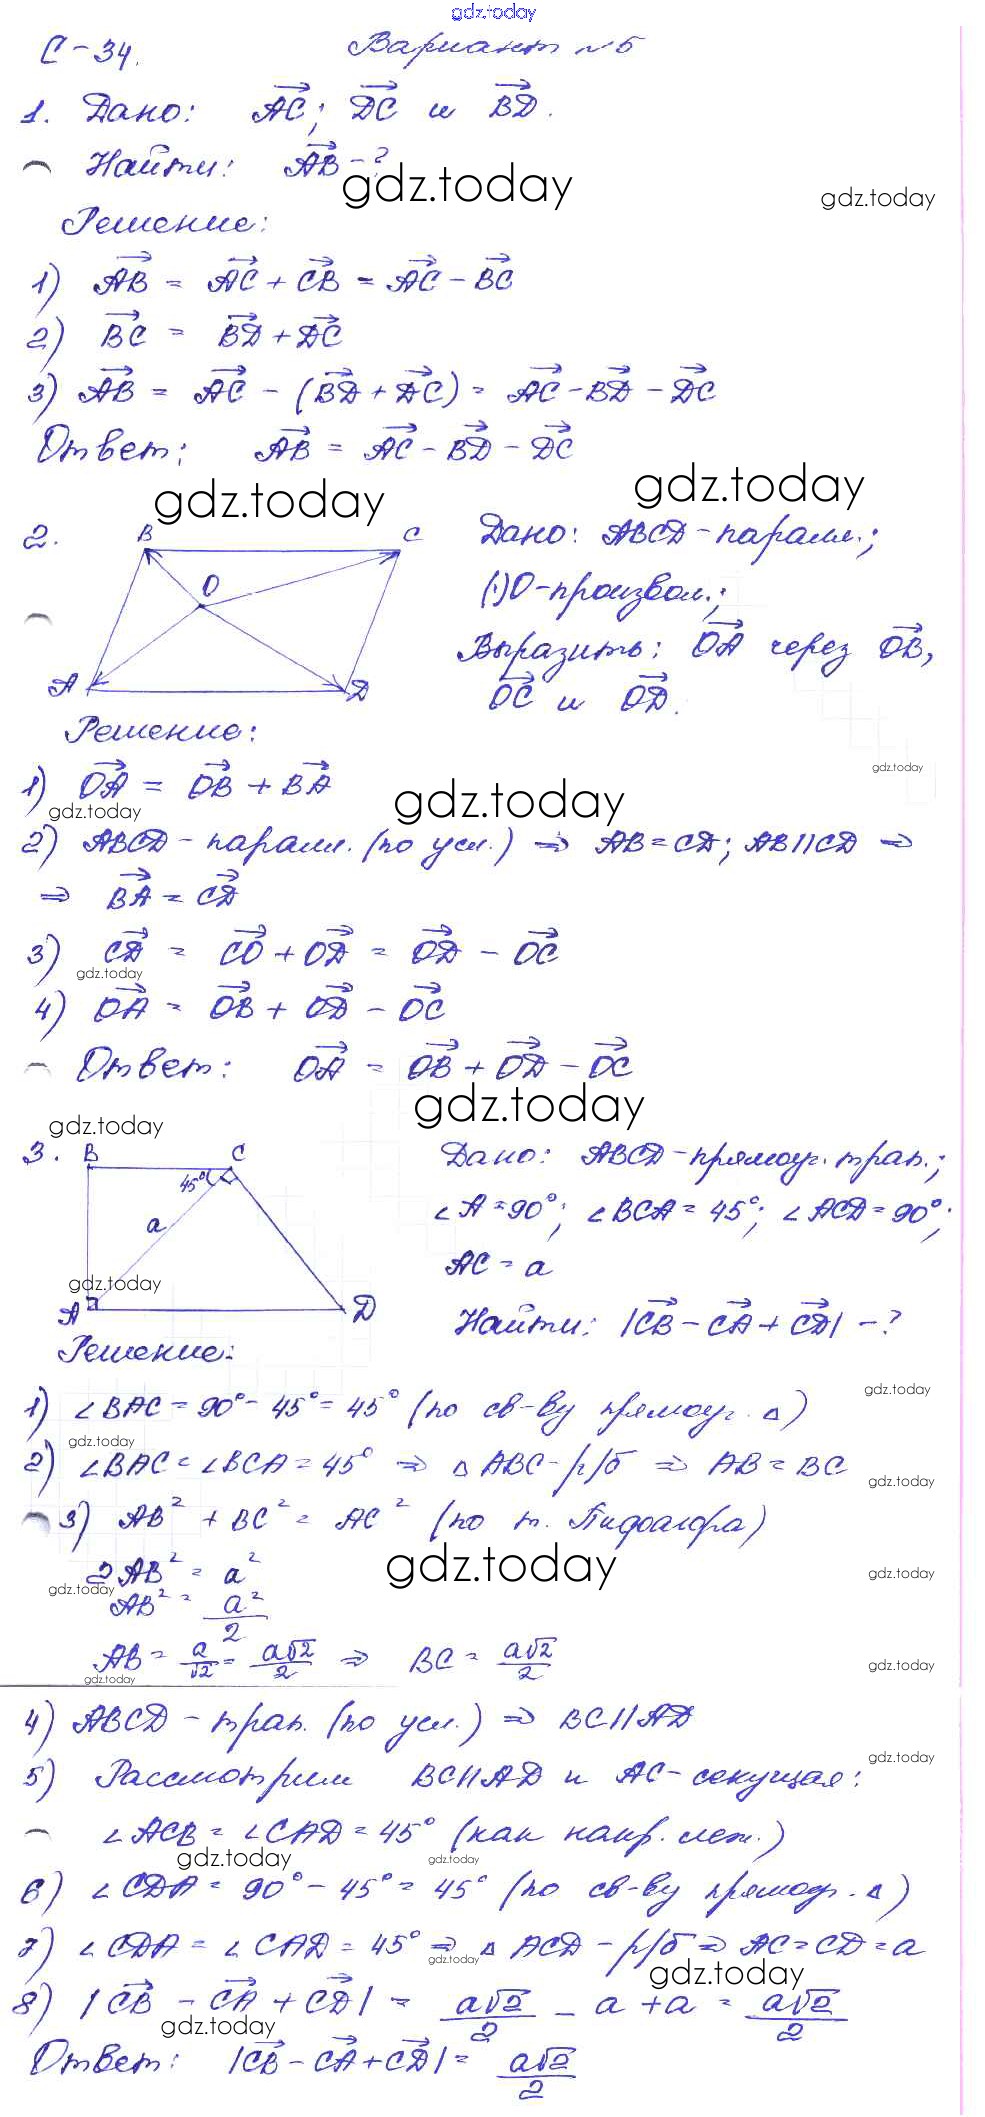 gdz.today
С-34. Вариант №5
1. Дано: AC; DC и BD.
Найти: AB-?
gdz.today
gdz.today
Решение:
1) AB = AC + CB = AC - BC
2) BC = BD + DC
3) AB = AC - (BD + DC) = AC - BD - DC
Ответ: AB = AC - BD - DC
gdz.today gdz.today
2. B C O A D
Дано: ABCD-паралл.;
(·)O-произвол.;
Выразить: OA через OB,
OC и OD.
Решение:
gdz.today
1) OA = OB + BA
gdz.today
gdz.today
2) ABCD - паралл. (по усл.) ⇒ AB = CD; AB || CD ⇒
⇒ BA = CD
3) CD = CO + OD = OD - OC
gdz.today
4) OA = OB + OD - OC
Ответ: OA = OB + OD - OC
gdz.today
gdz.today
3. B C 45° a A D
gdz.today
Дано: ABCD-прямоуг. трап.;
∠A = 90°; ∠BCA = 45°; ∠ACD = 90°;
AC = a
Найти: |CB - CA + CD| -?
Решение:
gdz.today
1) ∠BAC = 90° - 45° = 45° (по св-ву прямоуг. △)
gdz.today
2) ∠BAC = ∠BCA = 45° ⇒ △ABC - р/б ⇒ AB = BC
gdz.today
3) AB² + BC² = AC² (по т. Пифагора)
gdz.today
2AB² = a²
gdz.today
gdz.today
AB² = a²/2
AB = a/√2 = a√2/2 ⇒ BC = a√2/2
gdz.today
gdz.today
4) ABCD - трап. (по усл.) ⇒ BC || AD
gdz.today
5) Рассмотрим BC || AD и AC - секущая:
∠ACB = ∠CAD = 45° (как накр. леж.)
gdz.today
gdz.today
6) ∠CDA = 90° - 45° = 45° (по св-ву прямоуг. △)
7) ∠CDA = ∠CAD = 45° ⇒ △ACD - р/б ⇒ AC = CD = a
gdz.today
gdz.today
8) |CB - CA + CD| = a√2/2 - a + a = a√2/2
gdz.today
Ответ: |CB - CA + CD| = a√2/2